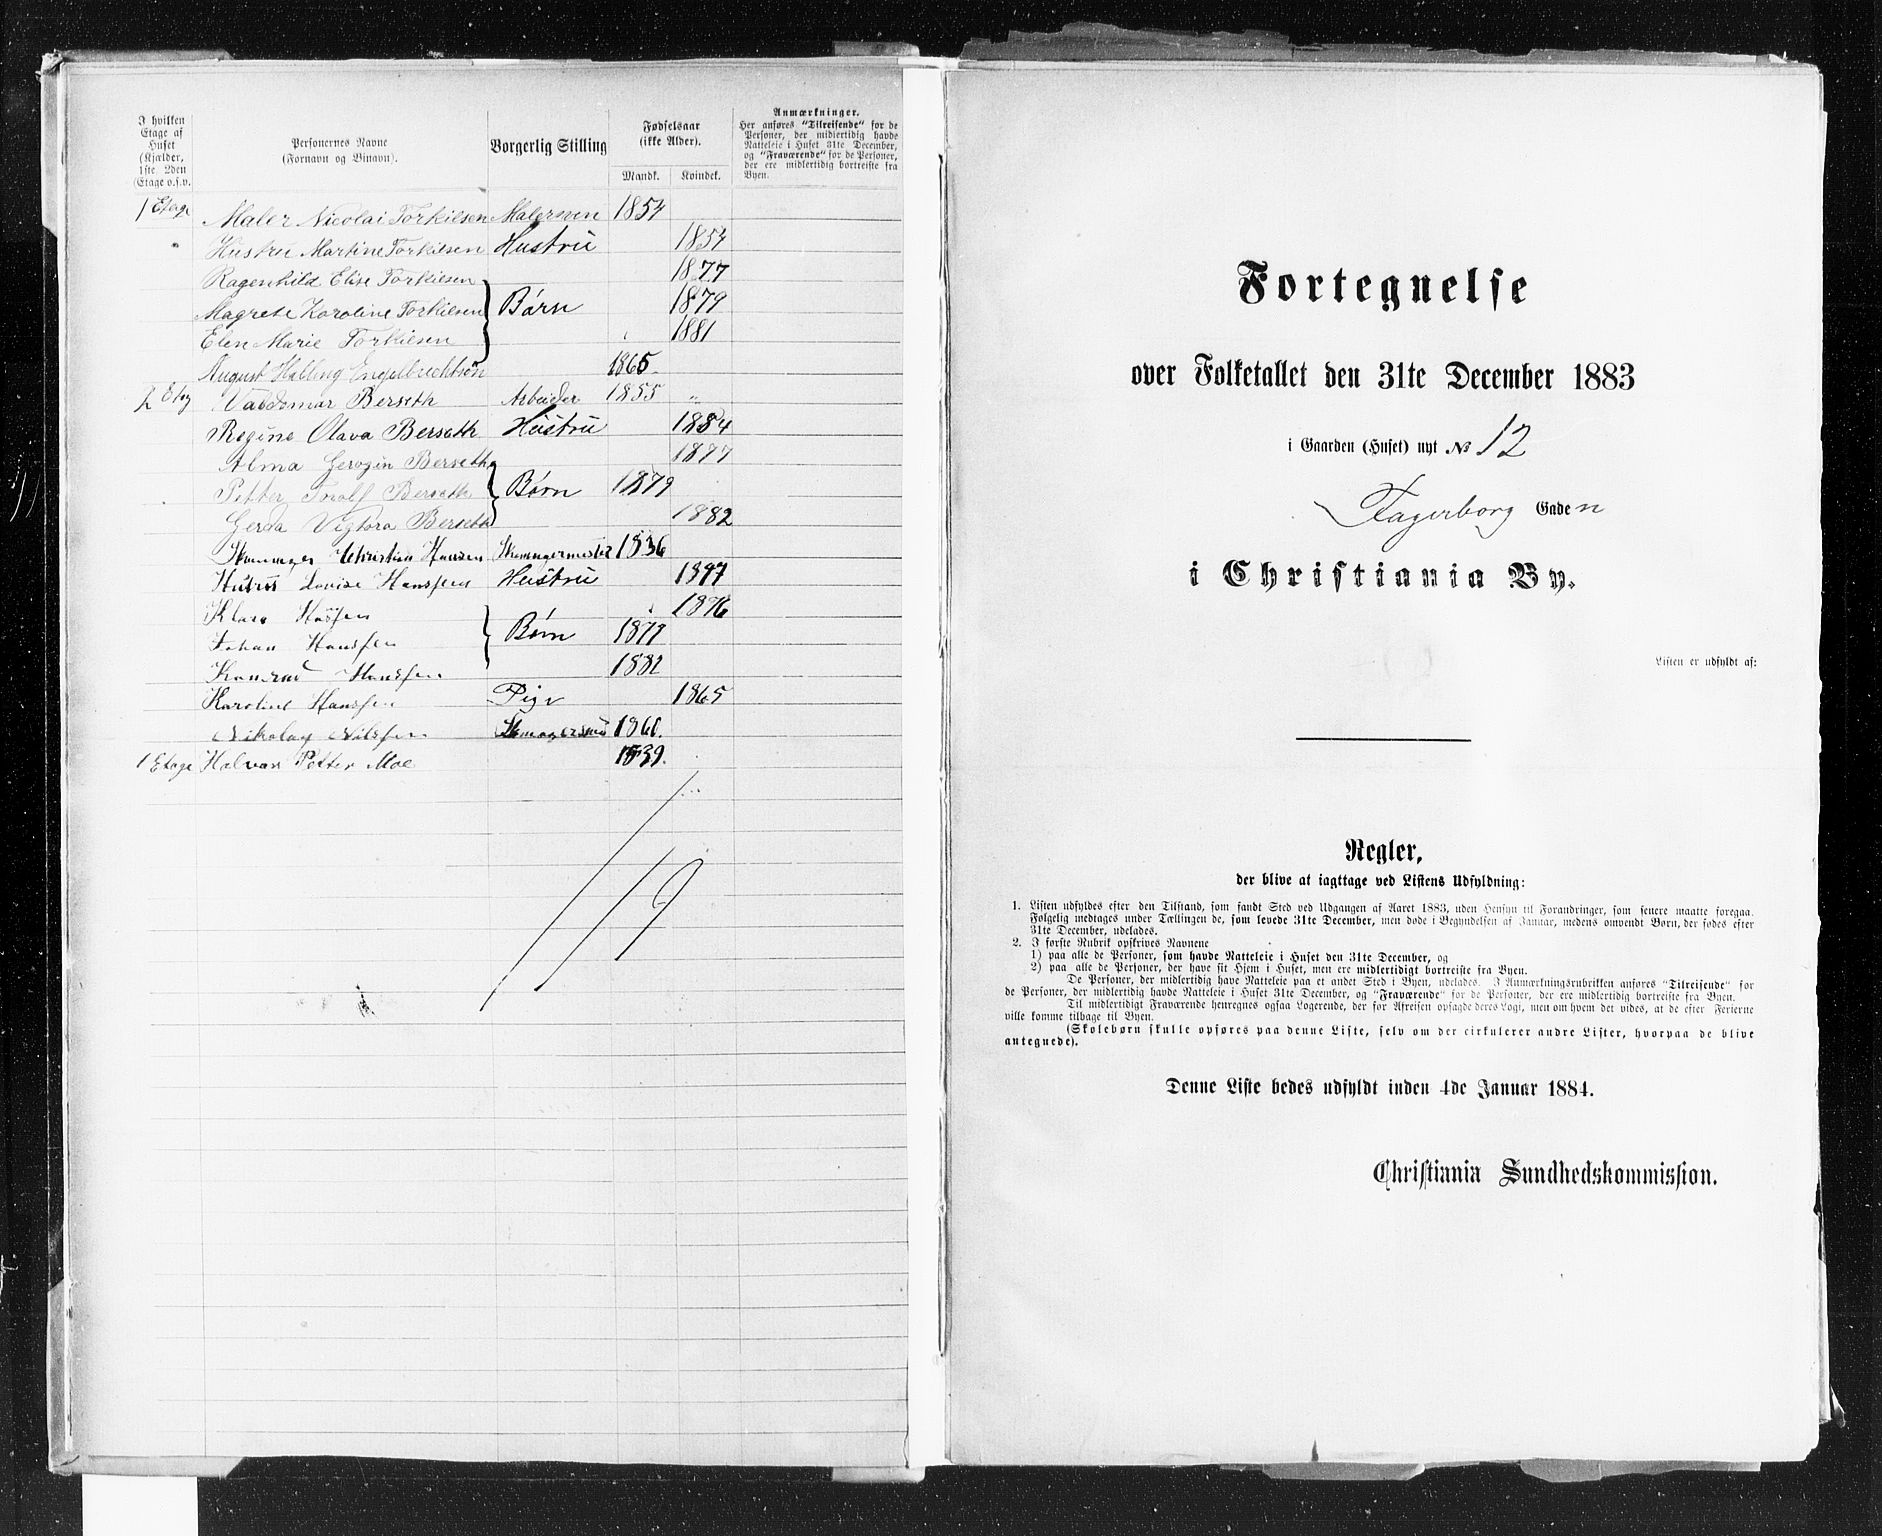 I hvilken
Etage af
Huset
(Kjælder,
1ste 2den
(Etage o.s.v.
Personernes Navne
(Fornavn og Binavn).
Borgerlig Stilling
Fødselsaar
(ikke Alder).
Mandk. Kvindek.
Anmærkninger.
Her anføres "Tilreisende" for de
Personer, der midlertidig havde
Natteleie i Huset 31te December,
og "Fraværende" for de Personer,
der ere midlertidig bortreiste fra
Byen.
1 Etage Maler Nicolai Torkilsen Malersven 1854
" Hustru Martine Torkilsen Hustru 1854
Ragenhild Elise Torkilsen 1877
Magrete Karoline Torkilsen Børn 1879
Elen Marie Torkilsen 1881
August Halling Engelbrechtsøn 1865.
2 Etag Valdemar Berseth Arbeider 1855 "
Regine Olava Berseth Hustru 1854
Alma Gerogin Berseth 1877
Petter Torolf Berseth Børn 1879
Gerda Vigtora Berseth 1882
Skomager Christian Hansen Skomagermester 1836
Hustru Lovise Hanssen Hustru 1847
Klara Hanssen 1876
Johan Hanssen Børn 1877
Konrad Hanssen 1882
Karoline Hanssen Pige 1865
Nikolay Nilssen Skomagersvend 1860.
1 Etage Halvar Petter Moe 1839.
19
Fortegnelse
over Folketallet den 31te December 1883
i Gaarden (Huset) nyt № 12
Fagerborg Gaden
i Christiania By.
Listen er udfyldt af:
Regler,
der blive at iagttage ved Listens Udfyldning:
1. Listen udfyldes efter den Tilstand, som fandt Sted ved Udgangen af Aaret 1883, uden Hensyn til Forandringer, som senere maatte foregaa.
Følgelig medtages under Tællingen de, som levede 31te December, men døde i Begyndelsen af Januar, medens omvendt Børn, der fødes efter
31te December, udelades.
2. I første Rubrik opskrives Navnene
1) paa alle de Personer, som havde Natteleie i Huset den 31te December, og
2) paa alle de Personer, der have sit Hjem i Huset, men ere midlertidigt bortreiste fra Byen.
De Personer, der midlertidig have Natteleie paa et andet Sted i Byen, udelades. I Anmærkningsrubrikken anføres "Tilreisende" for
de Personer, der midlertidig havde Natteleie i Huset 31te December, og "Fraværende" for de Personer, der ere midlertidig bortreiste fra Byen.
Til midlertidigt Fraværende henregnes ogsaa Logerende, der før Afreisen opsagde deres Logi, men om hvem det vides, at de efter Ferierne
ville komme tilbage til Byen.
(Skolebørn skulle opføres paa denne Liste, selv om der cirkulerer andre Lister, hvorpaa de blive
antegnede).
Denne Liste bedes udfyldt inden 4de Januar 1884.
Christiania Sundhedskommission.